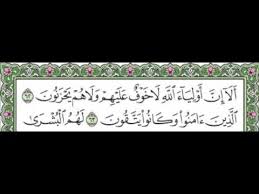 أَلَآ إِنَّ أَوْلِيَآءَ ٱللَّهِ لَا خَوْفٌ عَلَيْهِمْ وَلَا هُمْ يَحْزَنُونَ ٦٢
ٱلَّذِينَ ءَامَنُوا۟ وَكَانُوا۟ يَتَّقُونَ ٦٣ لَهُمُ ٱلْبُشْرَىٰ